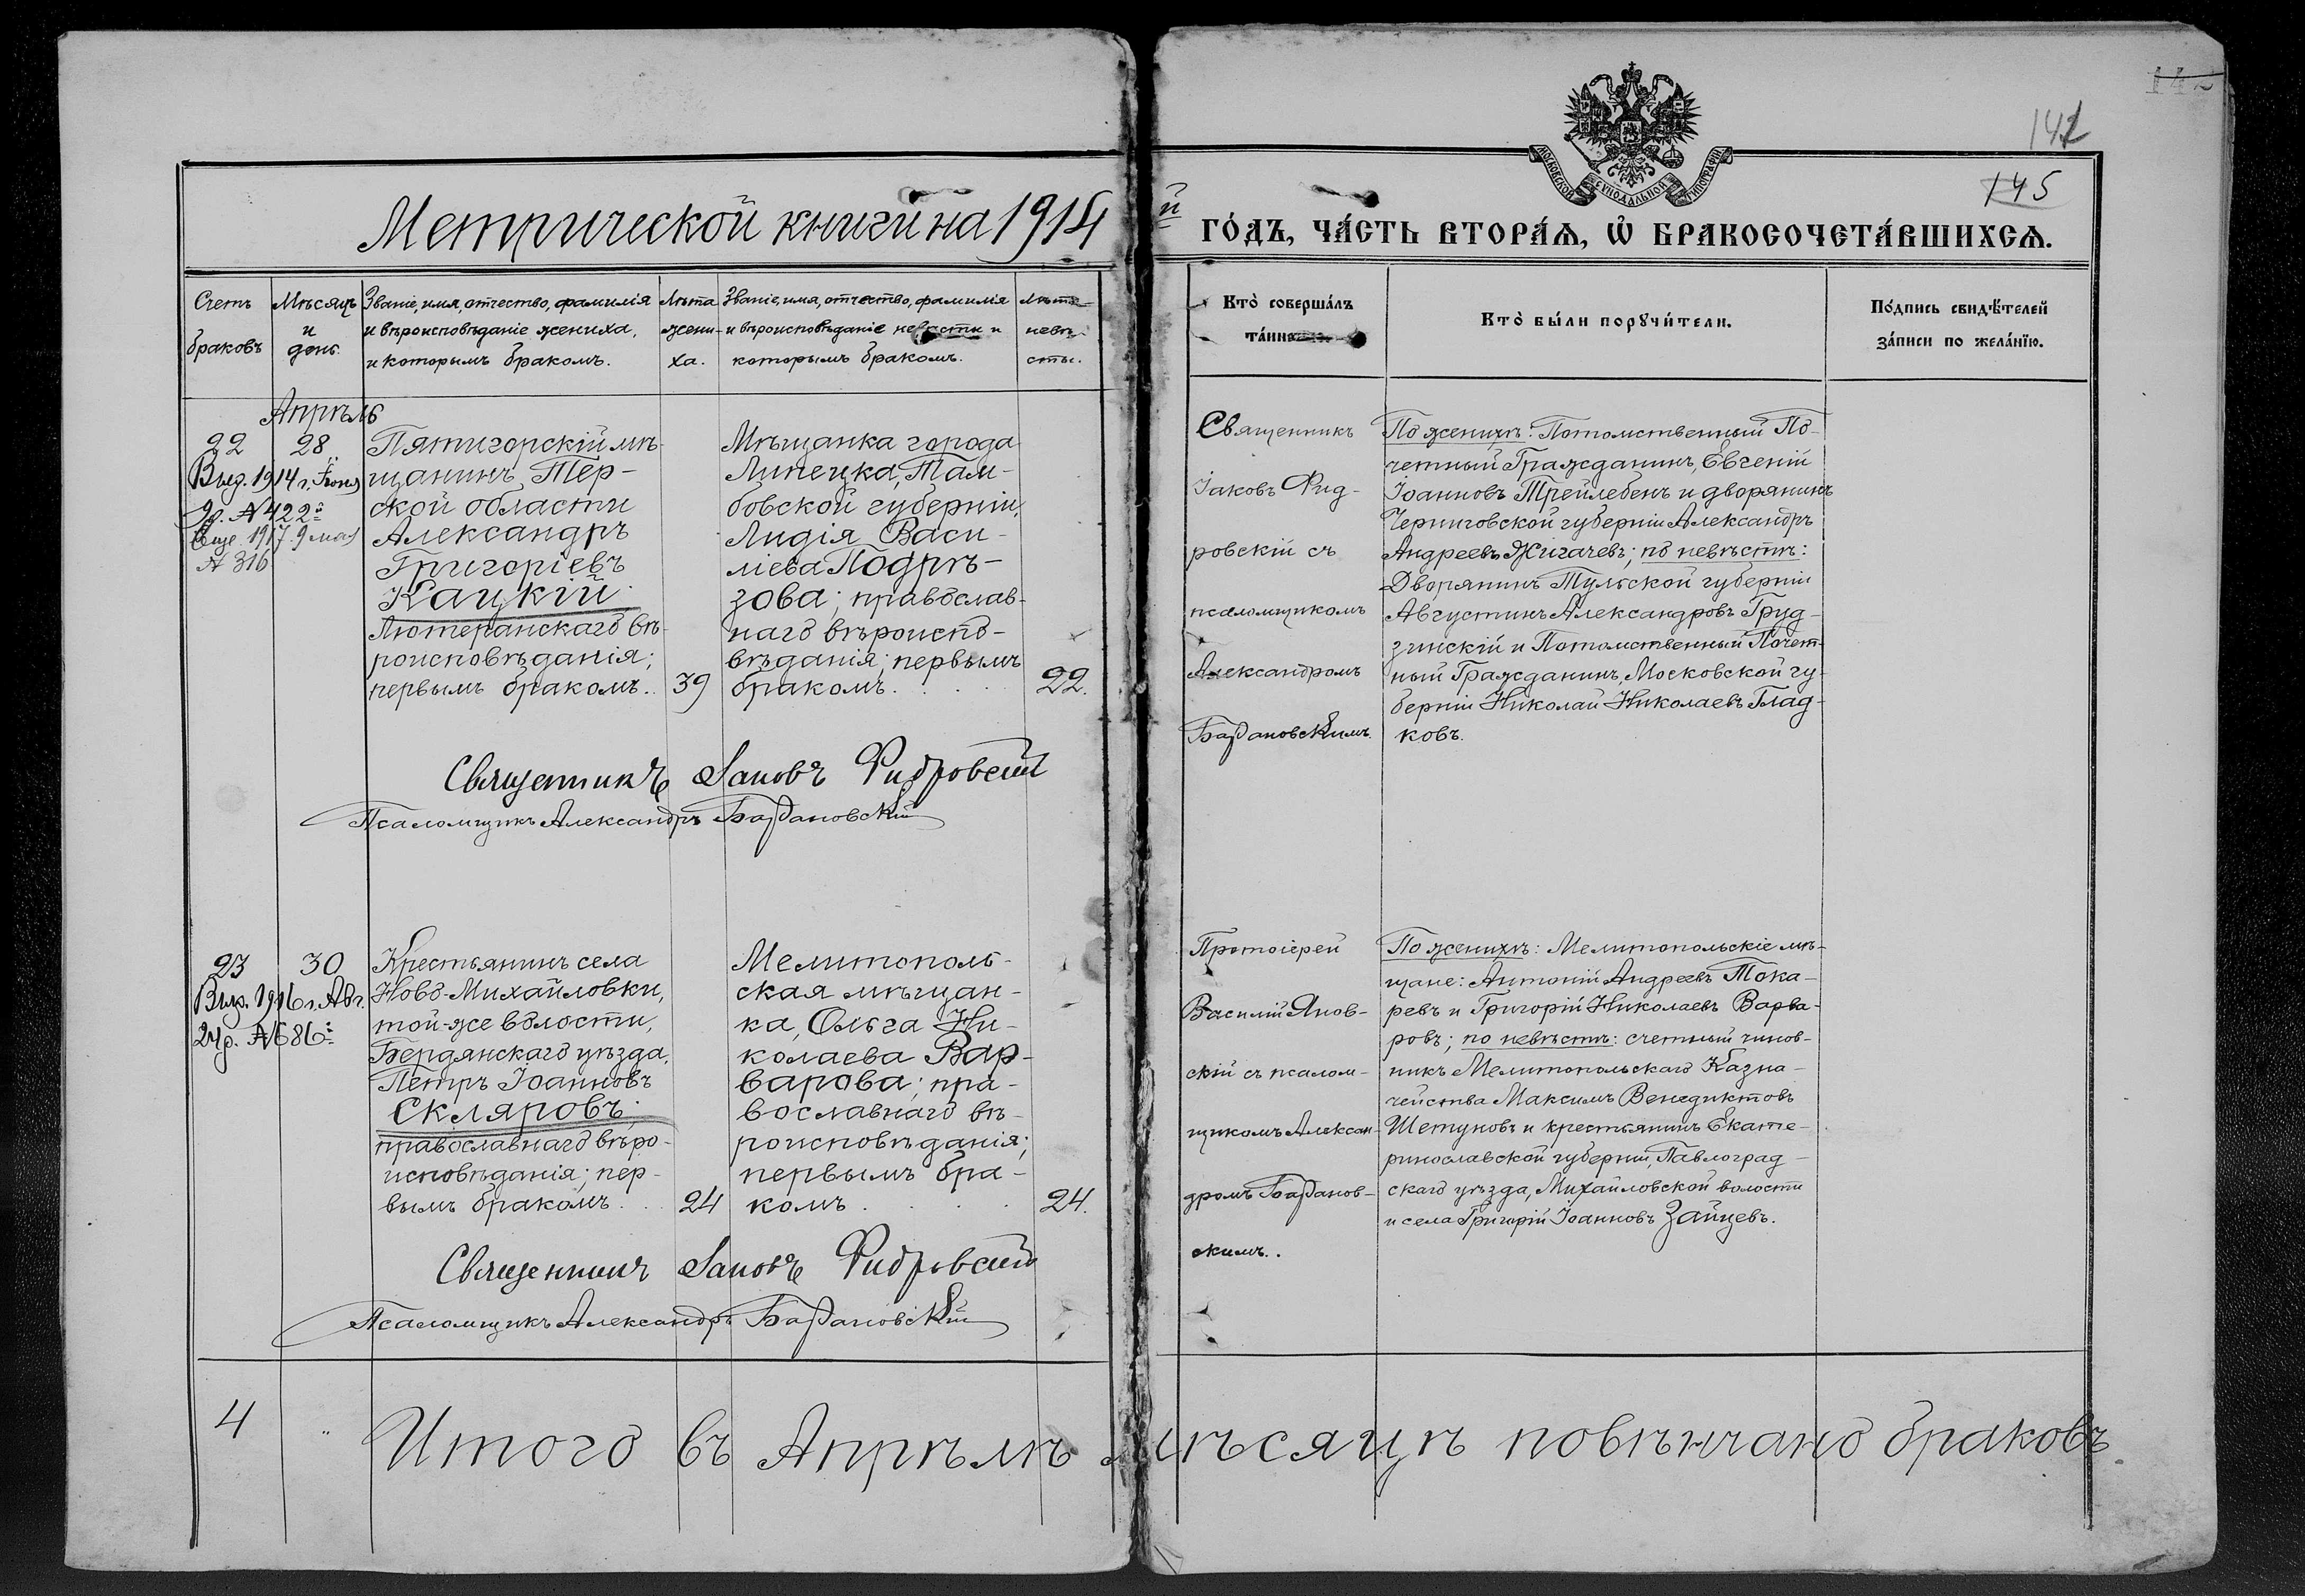 142
142
145
МОСКОВСКОЙ СѴНОДАЛЬНОЙ ТИПОГРАФІИ
Метрической книги на 1914 й го́дъ, ча́сть втора́ѧ, ѡ҆ бракосочета́вшихсѧ.
Счетъ браковъ
Мѣсяцъ и день.
Званіе, имя, отчество, фамилія
и вѣроисповѣданіе жениха,
и которымъ бракомъ.
Лѣта
жени-
ха.
Званіе, имя, отчество, фамилія
и вѣроисповѣданіе невѣсты и
которымъ бракомъ.
Лѣта
невѣ-
сты.
Кто̀ соверша́лъ
та́инство
Кто̀ бы́ли порꙋчи́тели.
По́дпись свидѣ́телей
за́писи по жела́нїю.
Апрѣль
22
28
Выд. 1914 г. Іюня
9. № 422й
Еще 1917. 9 мая
№ 316
Пятигорскій мѣ-
щанинъ, Тер-
ской области
Александръ
Григоріевъ
Кацкій;
Лютеранскаго вѣ-
роисповѣданія;
первымъ бракомъ..
39
Мѣщанка города
Липецка, Там-
бовской губерніи,
Лидія Васи-
ліева Подрѣ-
зова; православ-
наго вѣроиспо-
вѣданія; первымъ
бракомъ.
22.
Священникъ
Іаковъ Фид-
ровскій съ
псаломщикомъ
Александромъ
Бардановскимъ.
По женихѣ: Потомственный По-
четный Гражданинъ, Евгеній
Іоанновъ Трейлебенъ и дворянинъ
Черниговской губерніи Александръ
Андреевъ Жигачевъ; по невѣстѣ:
Дворянинъ Тульской губерніи
Августинъ Александровъ Груд-
зинскій и Потомственный Почет-
ный Гражданинъ, Московской гу-
берніи Николай Николаевъ Глад-
ковъ.
Священникъ Іаковъ Фидровскій
Псаломщикъ Александръ Бардановскій
23
30
Выд. 1916 г. Авг.
24 д. № 686й
Крестьянинъ села
Ново-Михайловки,
той-же волости,
Бердянскаго уѣзда,
Петръ Іоанновъ
Скляровъ;
православнаго вѣро-
исповѣданія; пер-
вымъ бракомъ...
24
Мелитополь-
ская мѣщан-
ка, Ольга Ни-
колаева Вар-
варова; пра-
вославнаго вѣ-
роисповѣданія;
первымъ бра-
комъ.
24.
Протоіерей
Василій Янов-
скій съ псалом-
щикомъ Алексан-
дромъ Барданов-
скимъ..
По женихѣ: Мелитопольскіе мѣ-
щане: Антоній Андреевъ Тока-
ревъ и Григорій Николаевъ Варва-
ровъ; по невѣстѣ: счетный чинов-
никъ Мелитопольскаго Казна-
чейства Максимъ Венедиктовъ
Шетуновъ и крестьянинъ Екате-
ринославской губерніи, Павлоград-
скаго уѣзда, Михайловской волости
и села Григорій Іоанновъ Зайцевъ.
Священникъ Іаковъ Фидровскій
Псаломщикъ Александръ Бардановскій
4 " Итого въ Апрѣлѣ мѣсяцѣ повѣнчано браковъ.